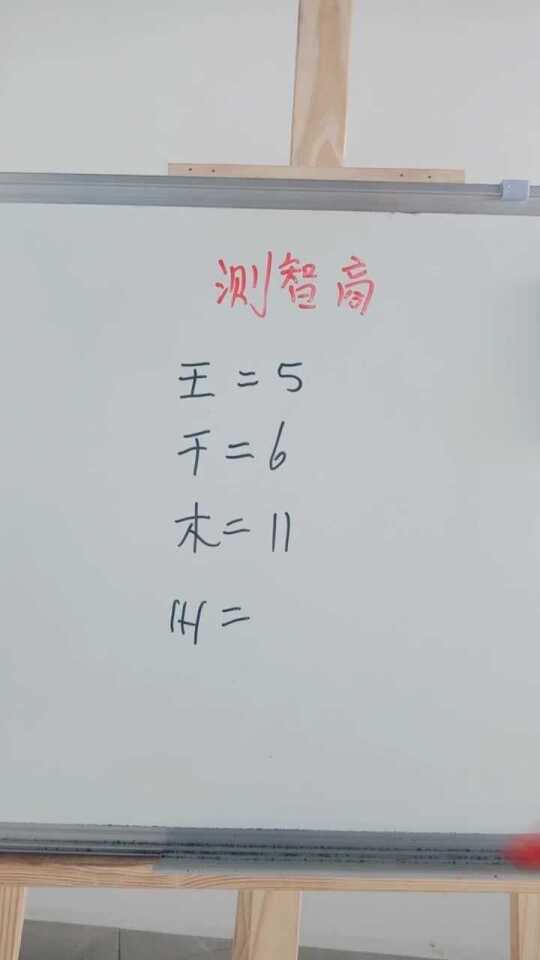 测智高
王 = 5
干 = 6
木 = 11
卅 =